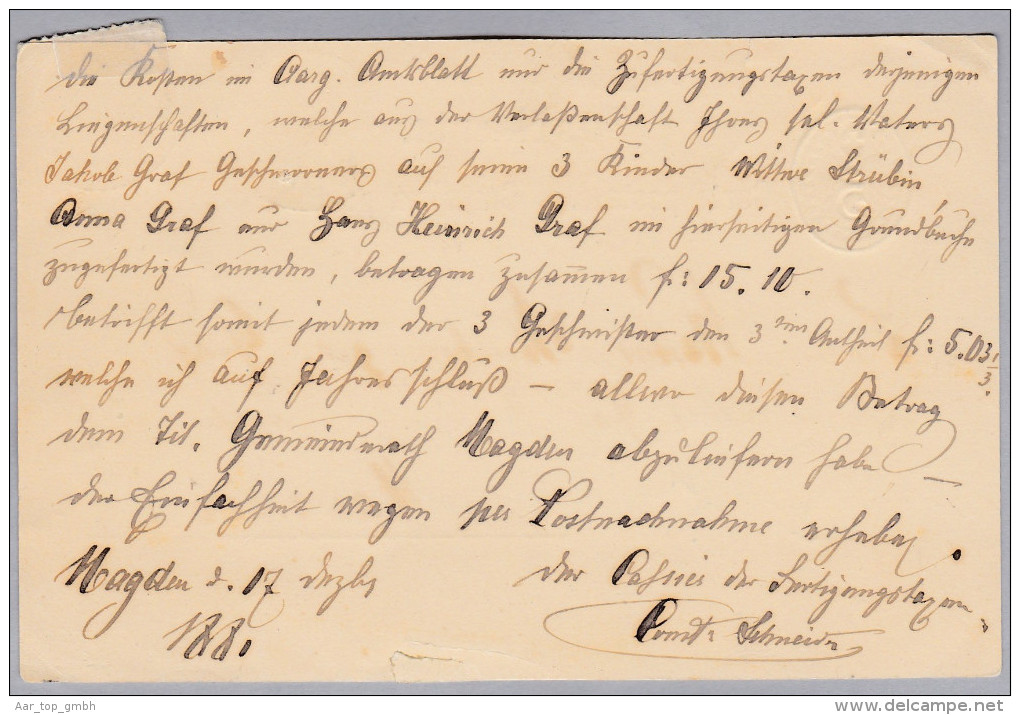 die Kosten im Aarg. Amtsblatt und die Zufertigungstaxen derjenigen
Liegenschaften, welche aus der Verlaßenschaft Ihres sel. Vaters
Jakob Graf Geschworners auf seine 3 Kinder Wittwe Strübin
Anna Graf und Hans Heinrich Graf im hierseitigen Grundbuche
zugefertigt wurden, betragen zusam̄en fr: 15. 10.
betrifft somit jedem der 3 Geschwister den 3ten Antheil fr: 5.03 1/3.
welche ich auf Jahresschluß – allwo diesen Betrag
dem Tit. Gemeindrath Magden abzuliefern habe –
der Einfachheit wegen per Postnachnahme erhebe.
Magden d. 17 Dezbr
der Cassier der Fertigungstaxen
1880.
Schneider
Aar_top_gmbh
delcampe.net